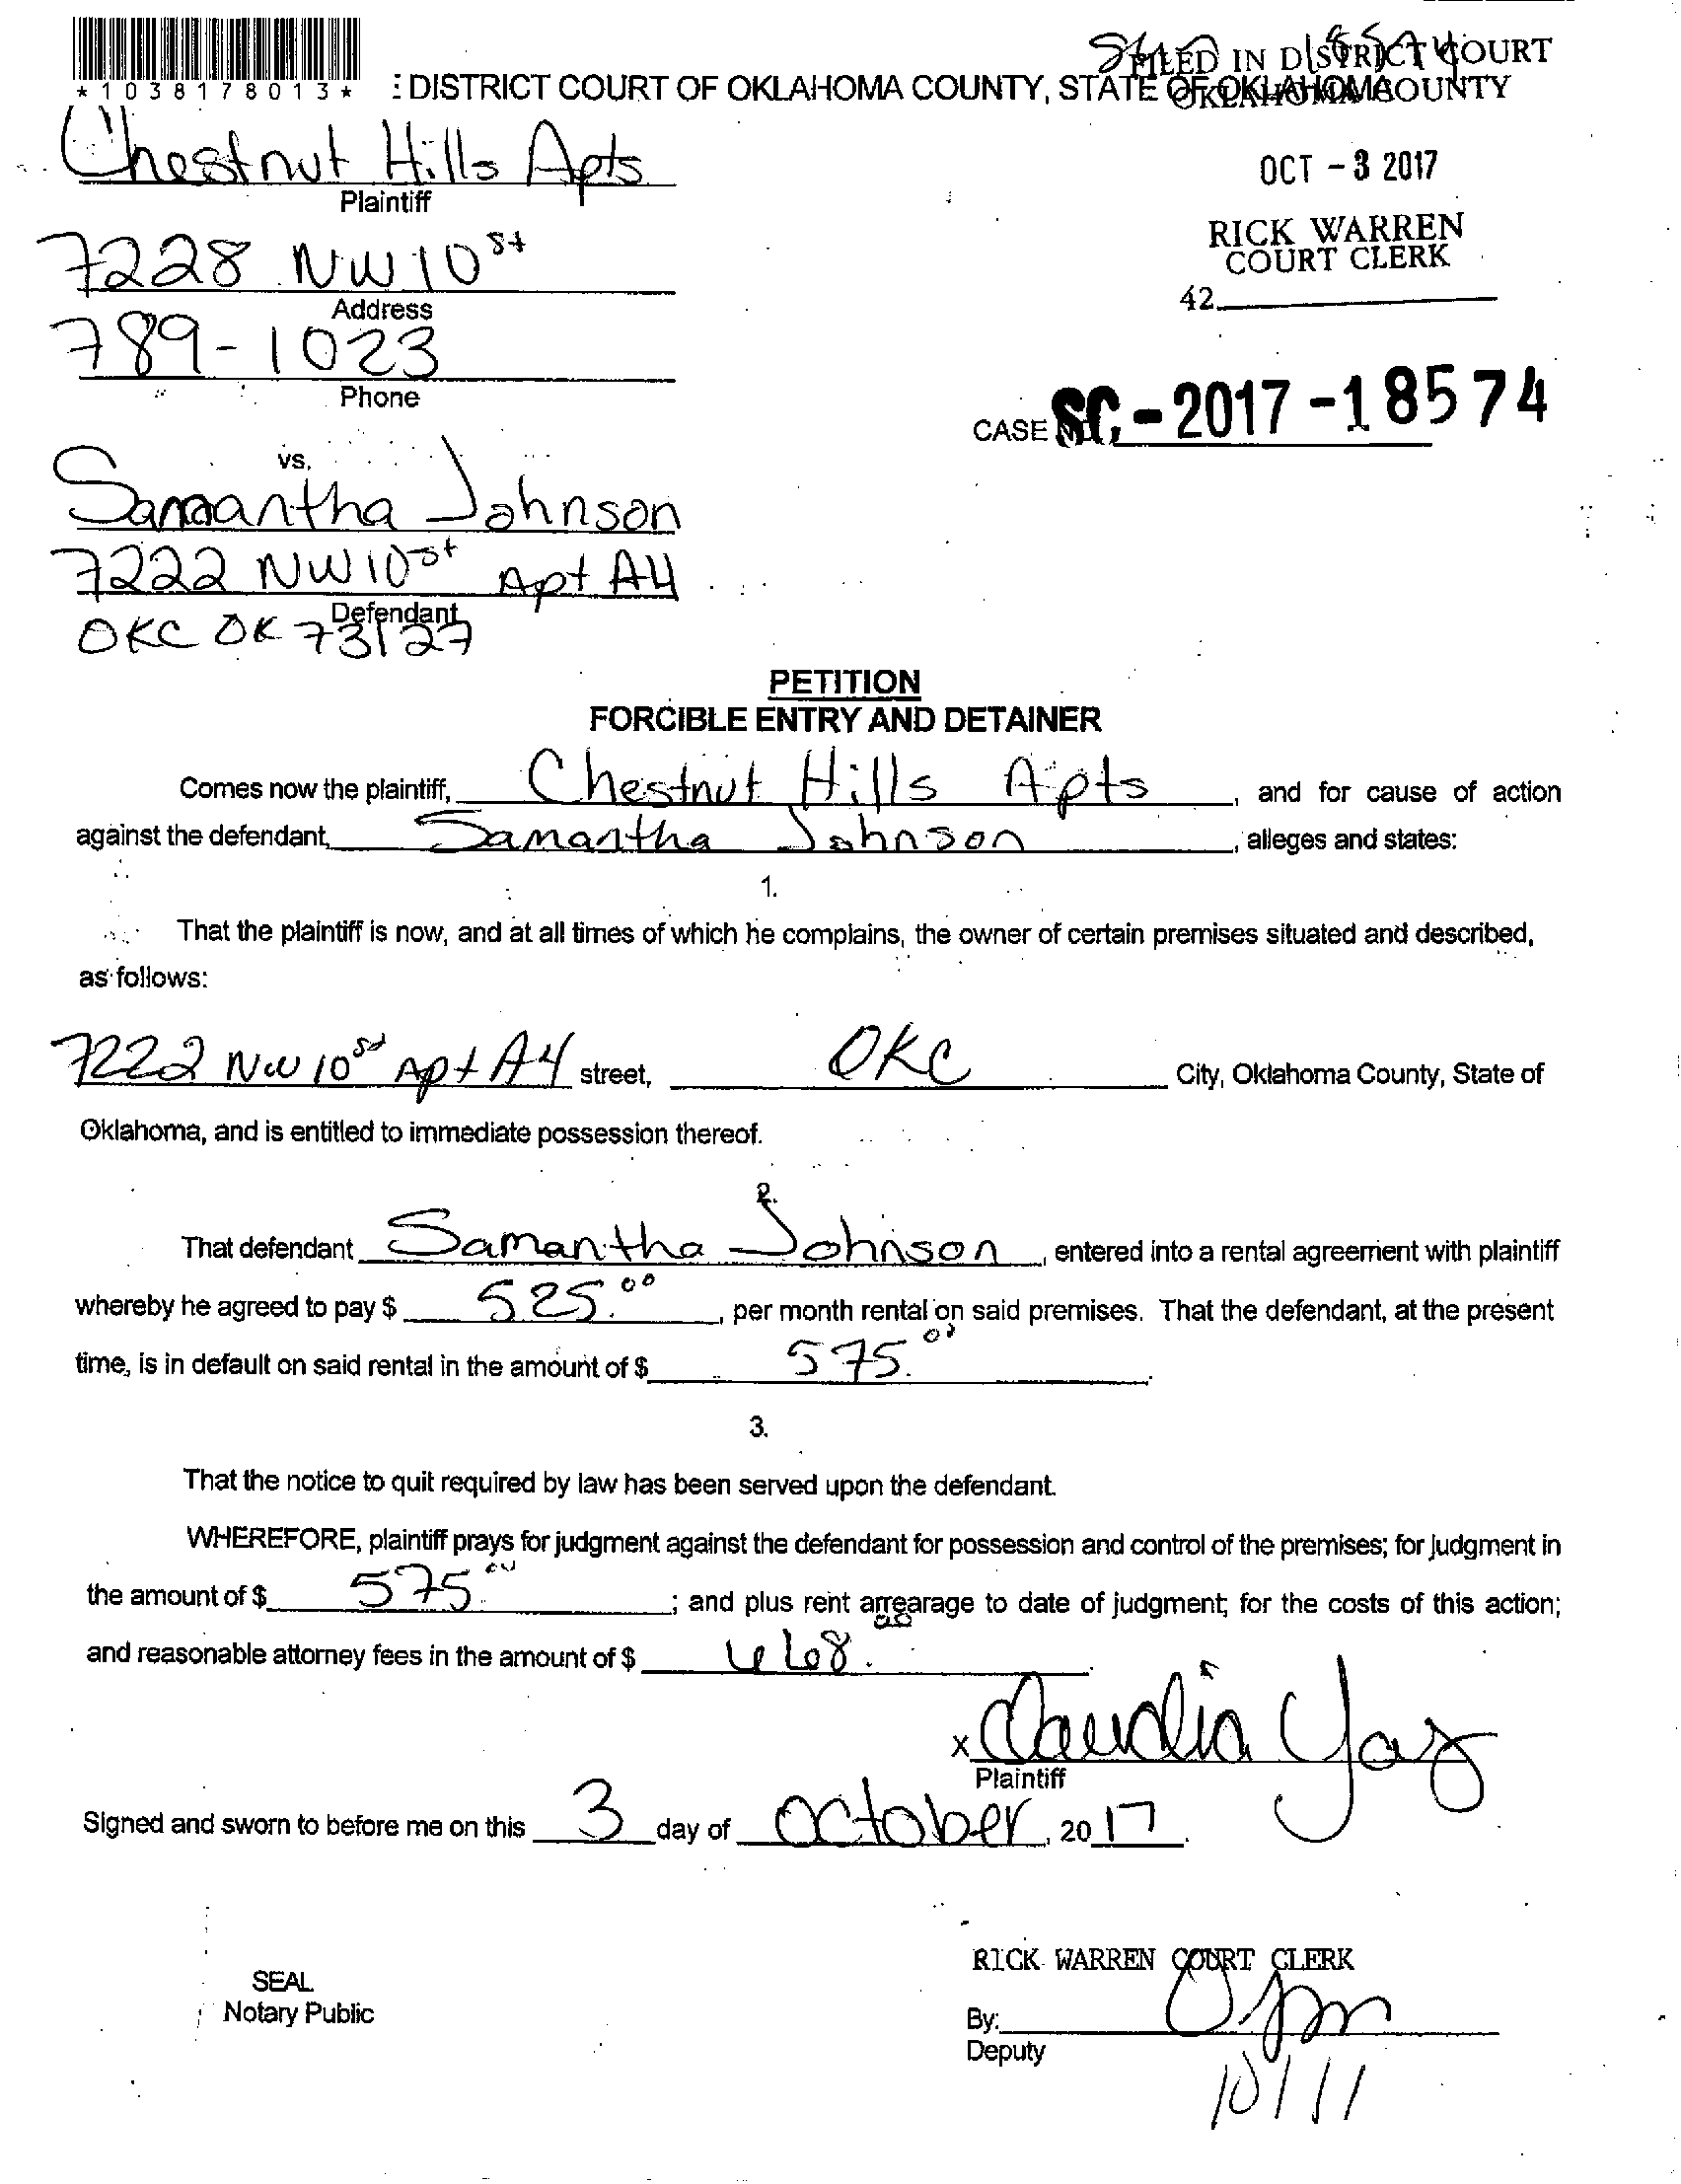 *1038178013*
FILED IN DISTRICT COURT
OKLAHOMA COUNTY
: DISTRICT COURT OF OKLAHOMA COUNTY, STATE OF OKLAHOMA
Chestnut Hills Apts
Plaintiff
OCT - 3 2017
7228 NW 10 st
Address
RICK WARREN
COURT CLERK
42
789-1023
Phone
CASE NO. SC - 2017 - 18574
vs.
Samantha Johnson
7222 NW 10 st Apt A4
Defendant
OKC OK 73127
PETITION
FORCIBLE ENTRY AND DETAINER
Comes now the plaintiff, Chestnut Hills Apts, and for cause of action
against the defendant, Samantha Johnson, alleges and states:
1.
That the plaintiff is now, and at all times of which he complains, the owner of certain premises situated and described,
as follows:
7222 NW 10 st Apt A4 street, OKC City, Oklahoma County, State of
Oklahoma, and is entitled to immediate possession thereof.
2.
That defendant Samantha Johnson, entered into a rental agreement with plaintiff
whereby he agreed to pay $ 525.00, per month rental on said premises. That the defendant, at the present
time, is in default on said rental in the amount of $ 575.00.
3.
That the notice to quit required by law has been served upon the defendant.
WHEREFORE, plaintiff prays for judgment against the defendant for possession and control of the premises; for judgment in
the amount of $ 575.00; and plus rent arrearage to date of judgment; for the costs of this action;
and reasonable attorney fees in the amount of $
x Claudia Yaz
Plaintiff
Signed and sworn to before me on this 3 day of October, 2017.
RICK WARREN COURT CLERK
SEAL
Notary Public
By:
Deputy
10/11